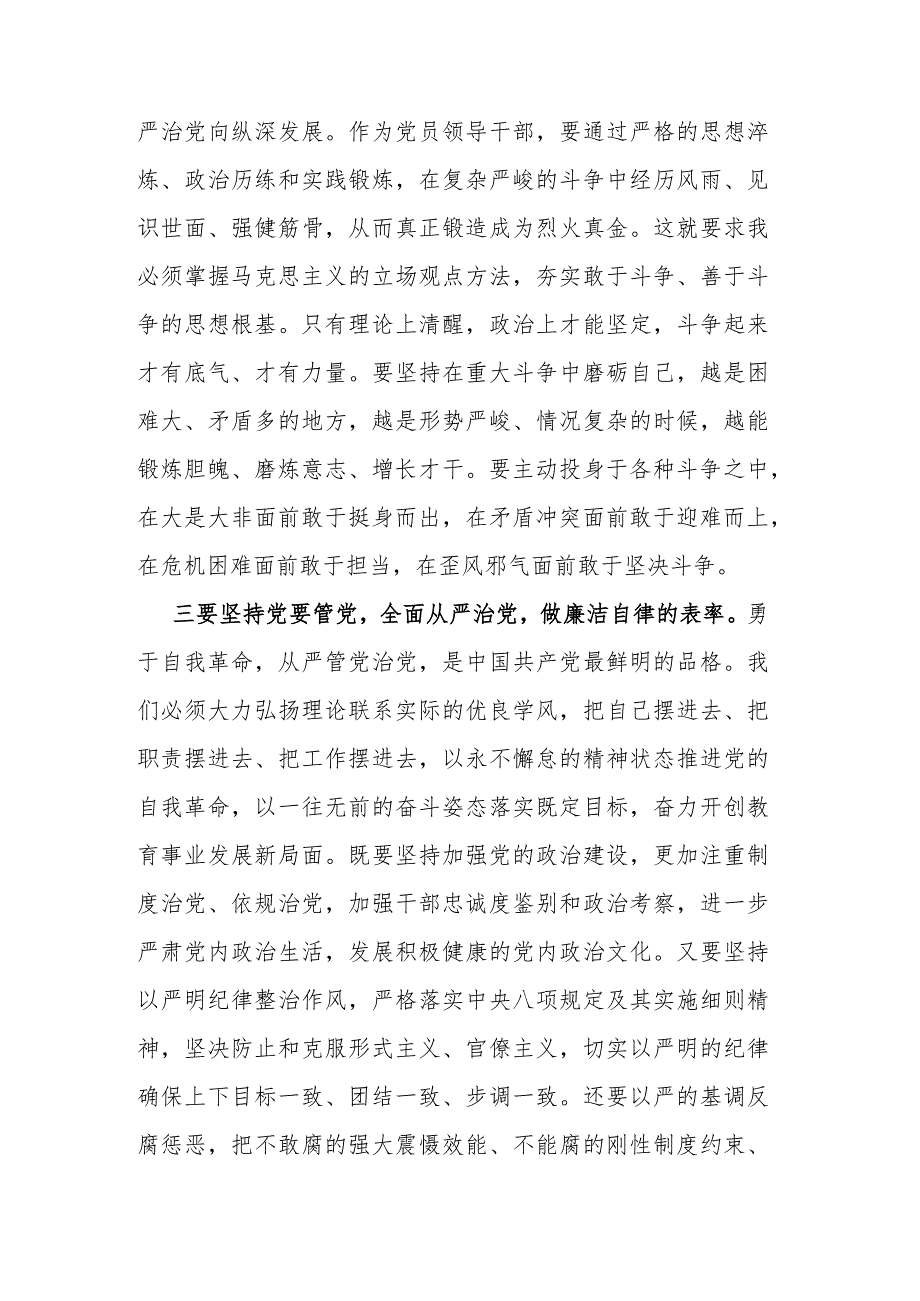 严治党向纵深发展。作为党员领导干部，要通过严格的思想淬
炼、政治历练和实践锻炼，在复杂严峻的斗争中经历风雨、见
识世面、强健筋骨，从而真正锻造成为烈火真金。这就要求我
必须掌握马克思主义的立场观点方法，夯实敢于斗争、善于斗
争的思想根基。只有理论上清醒，政治上才能坚定，斗争起来
才有底气、才有力量。要坚持在重大斗争中磨砺自己，越是困
难大、矛盾多的地方，越是形势严峻、情况复杂的时候，越能
锻炼胆魄、磨炼意志、增长才干。要主动投身于各种斗争之中，
在大是大非面前敢于挺身而出，在矛盾冲突面前敢于迎难而上，
在危机困难面前敢于担当，在歪风邪气面前敢于坚决斗争。
三要坚持党要管党，全面从严治党，做廉洁自律的表率。勇
于自我革命，从严管党治党，是中国共产党最鲜明的品格。我
们必须大力弘扬理论联系实际的优良学风，把自己摆进去、把
职责摆进去、把工作摆进去，以永不懈怠的精神状态推进党的
自我革命，以一往无前的奋斗姿态落实既定目标，奋力开创教
育事业发展新局面。既要坚持加强党的政治建设，更加注重制
度治党、依规治党，加强干部忠诚度鉴别和政治考察，进一步
严肃党内政治生活，发展积极健康的党内政治文化。又要坚持
以严明纪律整治作风，严格落实中央八项规定及其实施细则精
神，坚决防止和克服形式主义、官僚主义，切实以严明的纪律
确保上下目标一致、团结一致、步调一致。还要以严的基调反
腐惩恶，把不敢腐的强大震慑效能、不能腐的刚性制度约束、